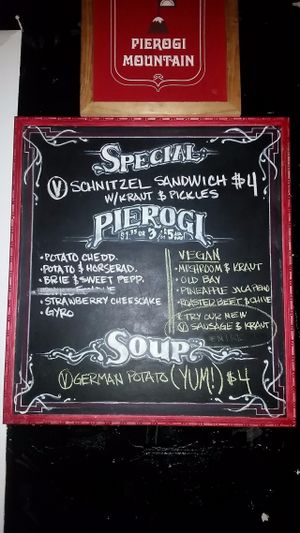 PIEROGI
MOUNTAIN
SPECIAL
V SCHNITZEL SANDWICH $4
W/KRAUT & PICKLES
PIEROGI
• POTATO CHEDD.
• POTATO & HORSERAD.
• BRIE & SWEET PEPP.
• STRAWBERRY CHEESCAKE
• GYRO
VEGAN
• MUSHROOM & KRAUT
• OLD BAY
• PINEAPPLE JALAPENO
• ROASTED BEET & CHIVE
* TRY OUR NEW
V SAUSAGE & KRAUT
SOUP
V GERMAN POTATO (YUM!) $4